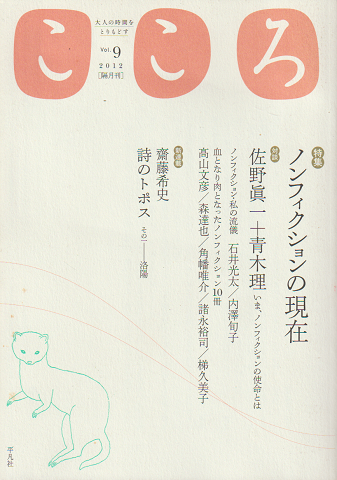 大人の時間を
とりもどす
こころ
Vol. 9
2012
[隔月刊]
特集
ノンフィクションの現在
対談
佐野眞一+青木理 いま、ノンフィクションの使命とは
ノンフィクション・私の流儀 石井光太/内澤旬子
血となり肉となったノンフィクション10冊
髙山文彦/森達也/角幡唯介/諸永裕司/梯久美子
新連載
齋藤希史
詩のトポス その一──洛陽
平凡社